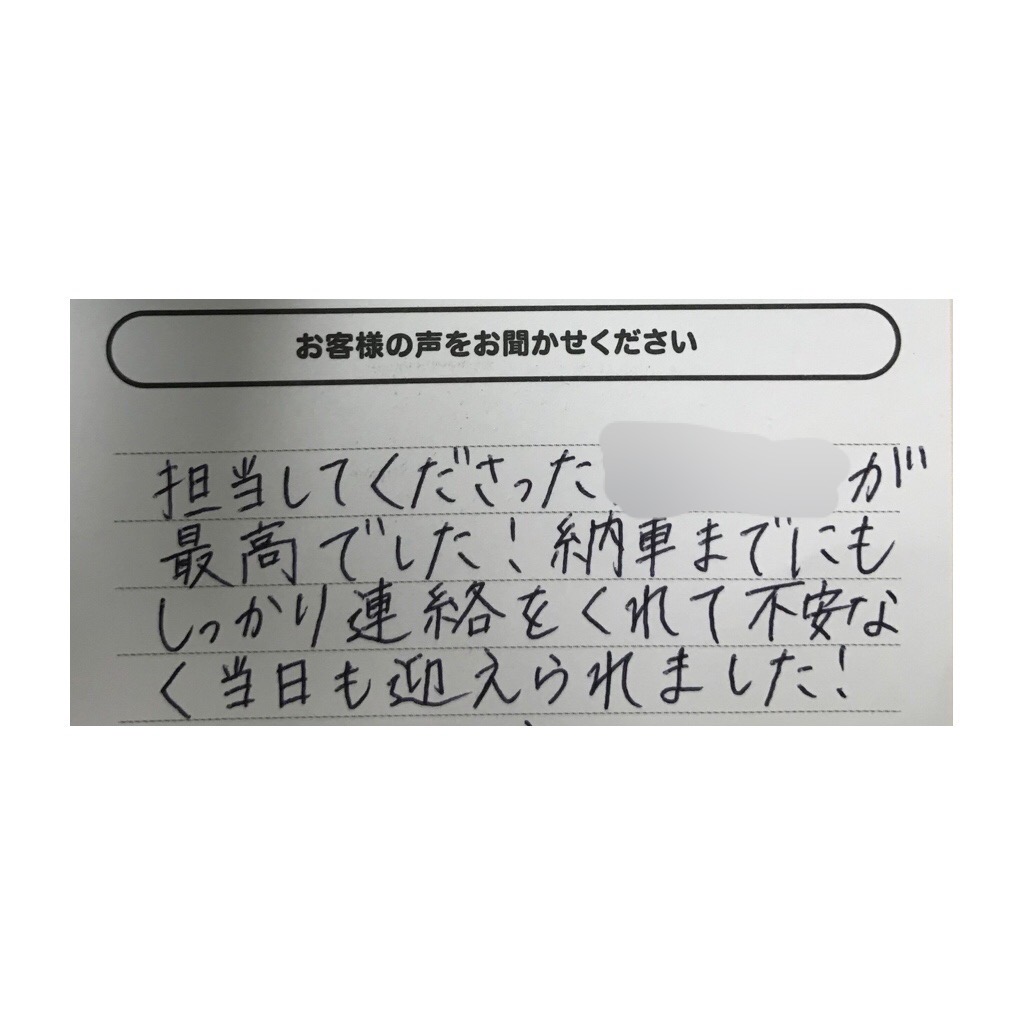 お客様の声をお聞かせください
担当してくださった が
最高でした！納車までにも
しっかり連絡をくれて不安な
く当日も迎えられました！